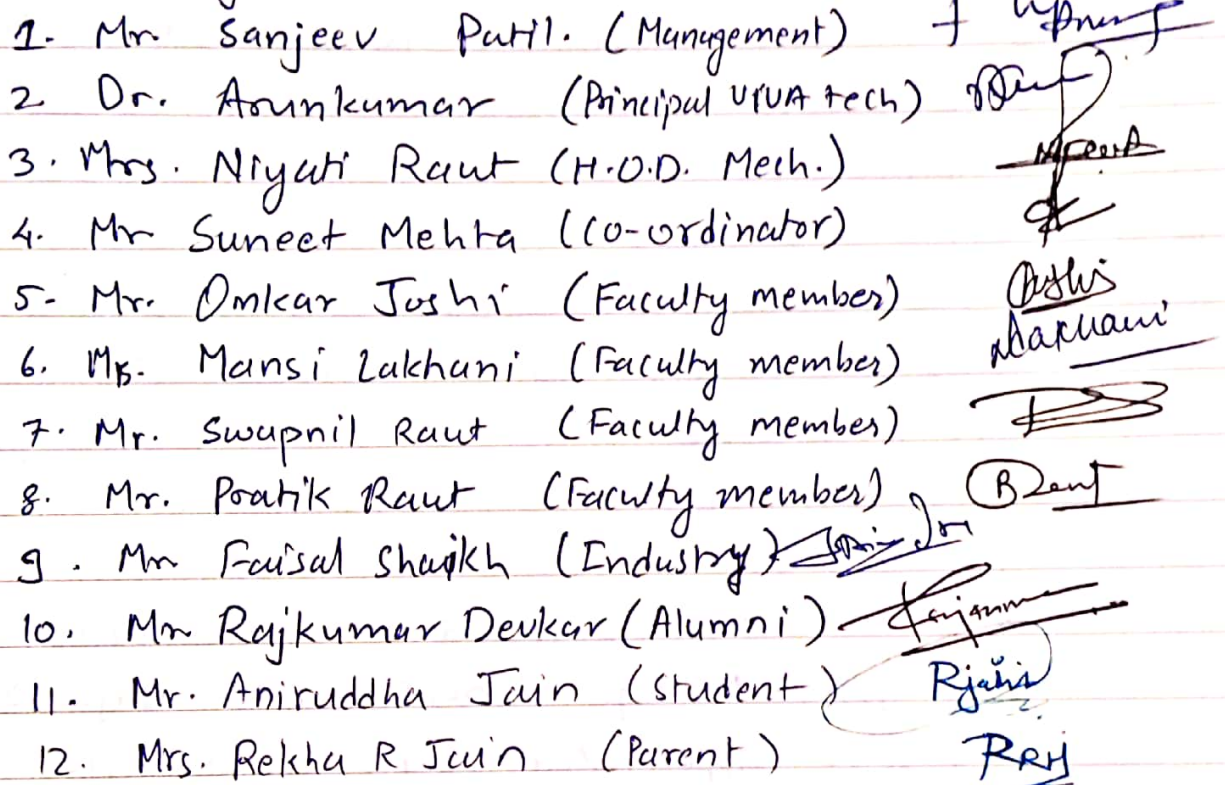 1. Mr. Sanjeev Patil. (Management)
2 Dr. Arunkumar (Principal VIVA tech)
3. Mrs. Niyati Raut (H.O.D. Mech.)
4. Mr Suneet Mehta (Co-ordinator)
5- Mr. Omkar Joshi (Faculty member) Joshi
6. Ms. Mansi Lakhani (Faculty member) Lakhani
7. Mr. Swapnil Raut (Faculty member)
8. Mr. Pratik Raut (Faculty member)
9. Mr Faisal Shaikh (Industry)
10. Mr Rajkumar Devkar (Alumni)
11. Mr. Aniruddha Jain (Student) RJain
12. Mrs. Rekha R Jain (Parent) RRJ